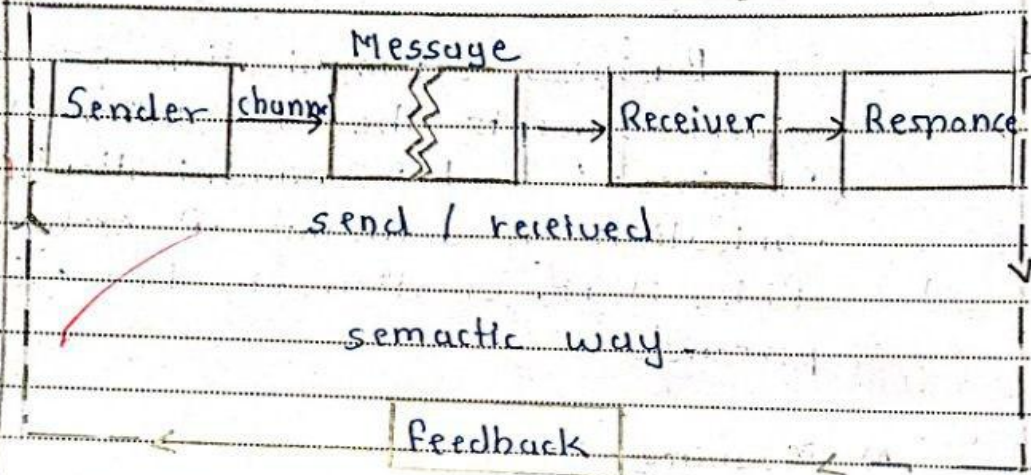 Message
Sender channe Receiver Responce
send / received
semactic way -
Feedback